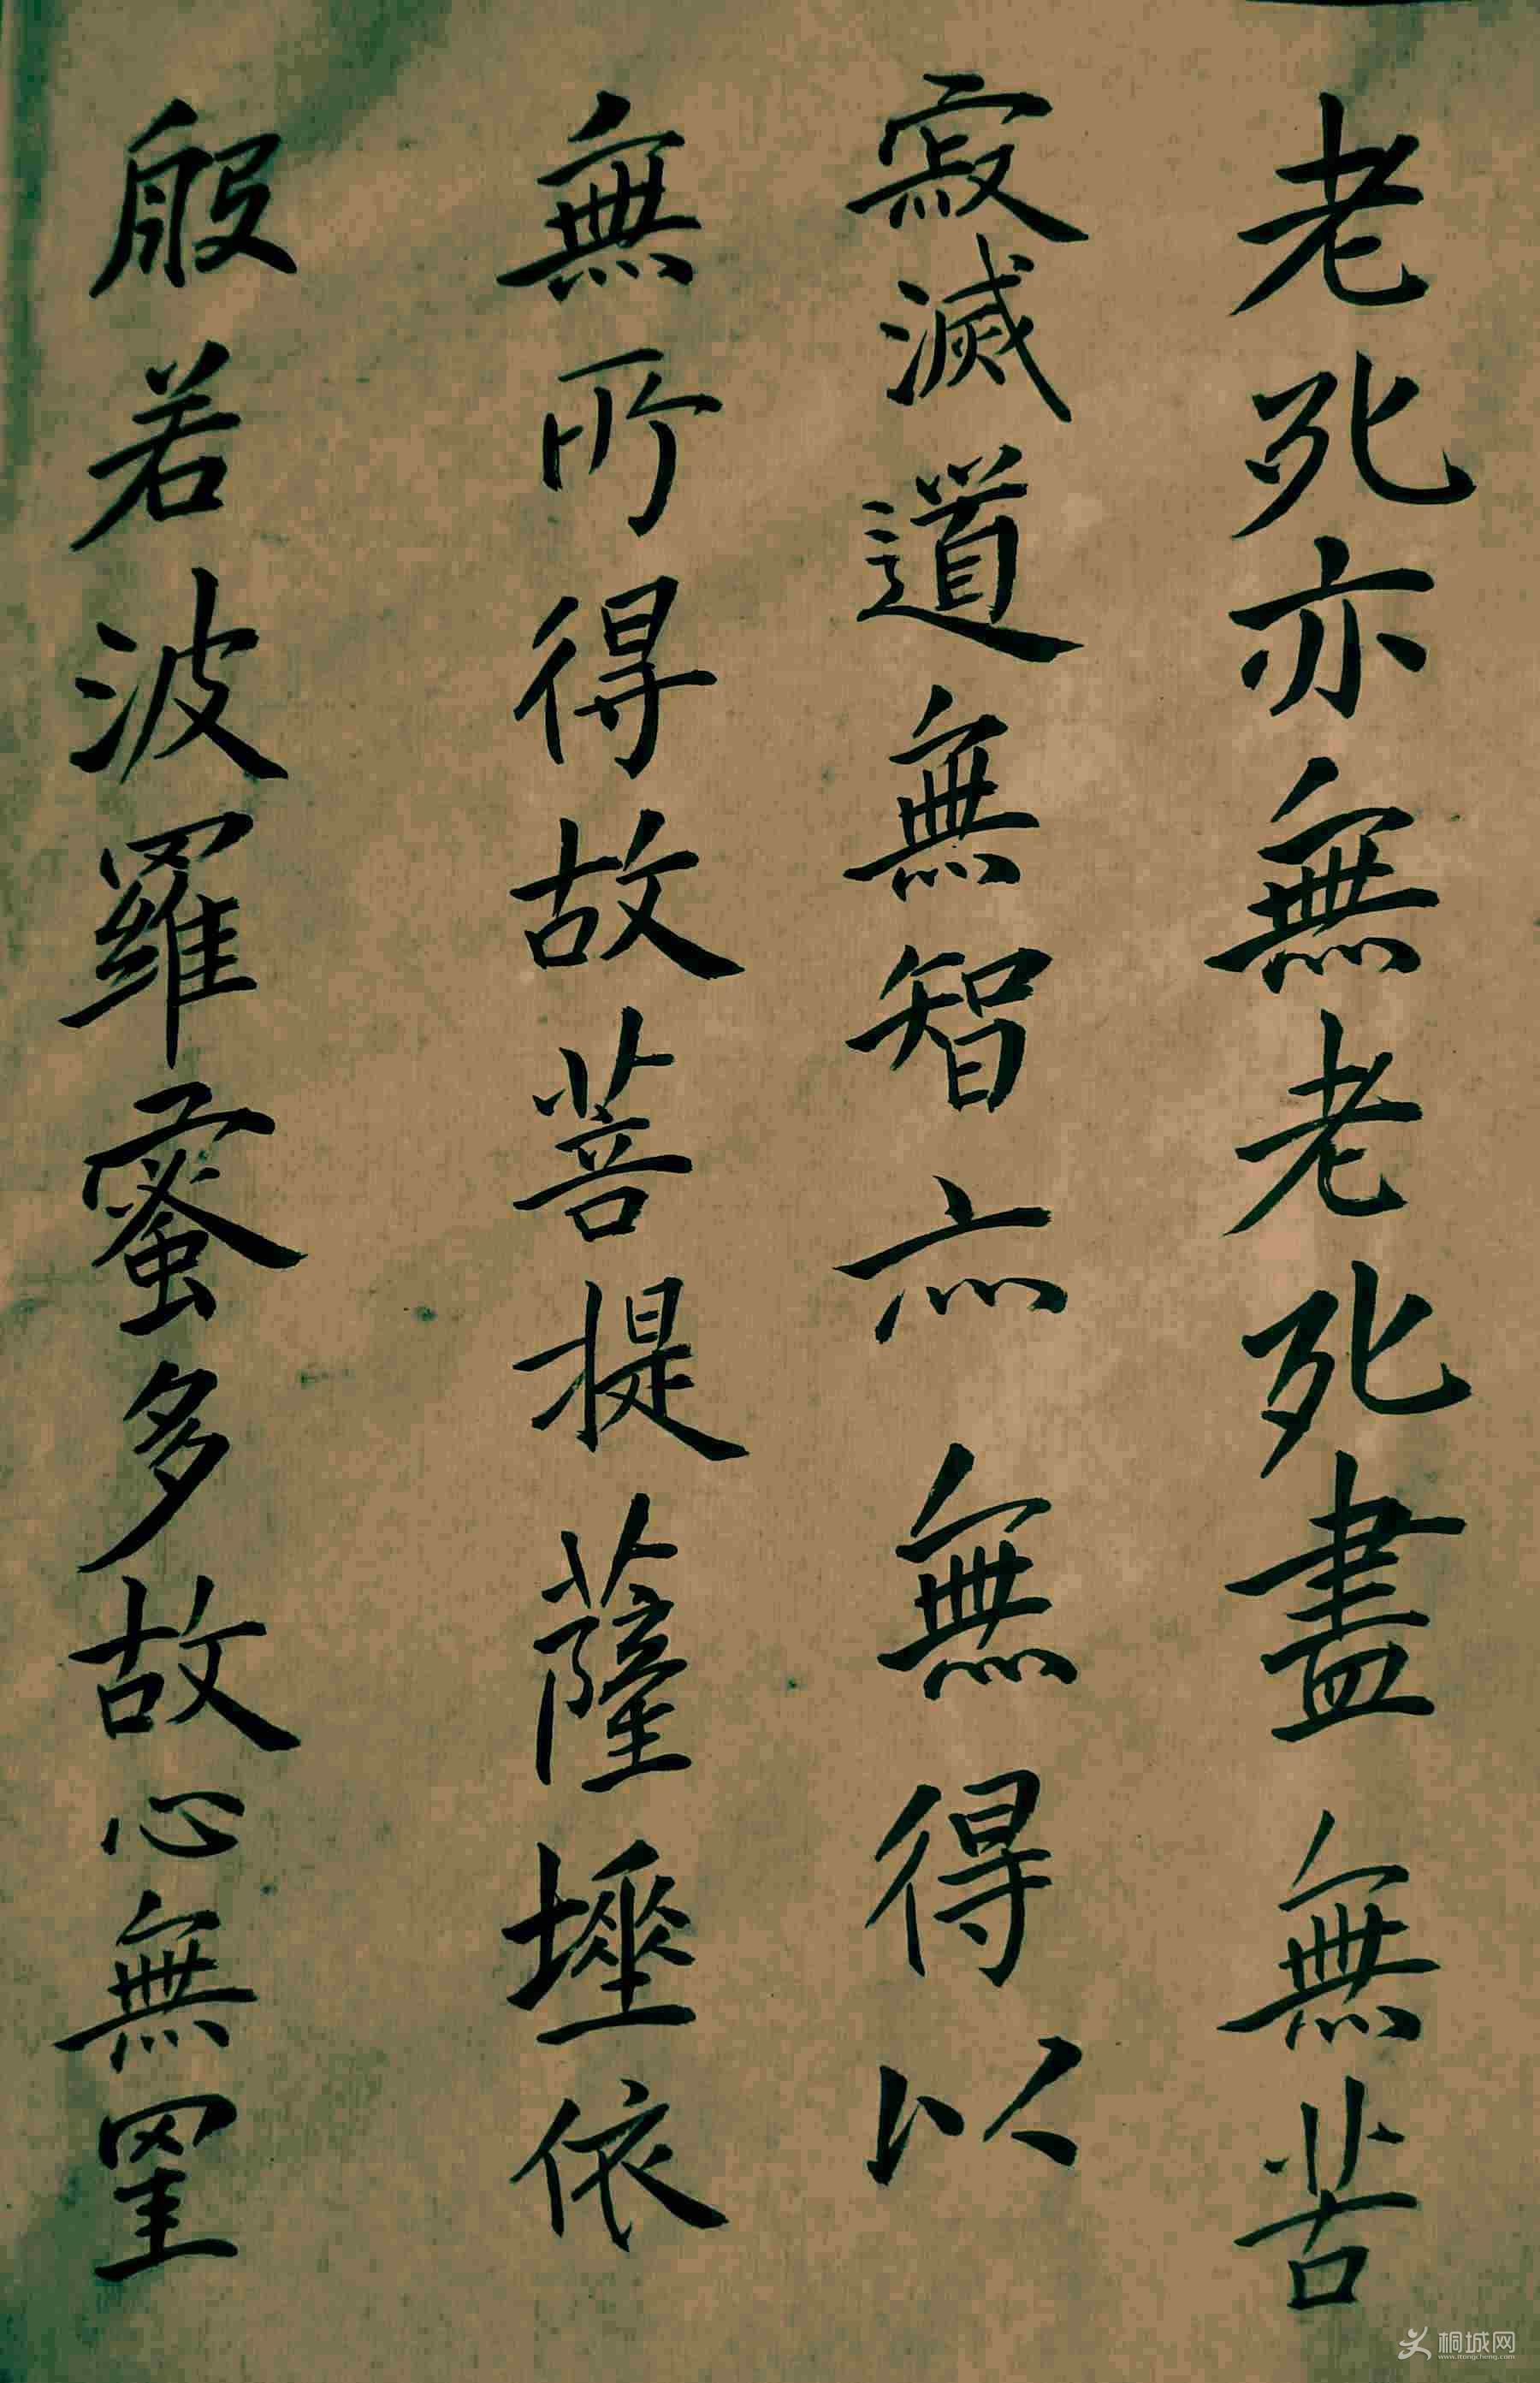 老死亦無老死盡無苦
寂滅道無智亦無得以
無所得故菩提薩埵依
般若波羅蜜多故心無罣
桐城网
www.itongcheng.com